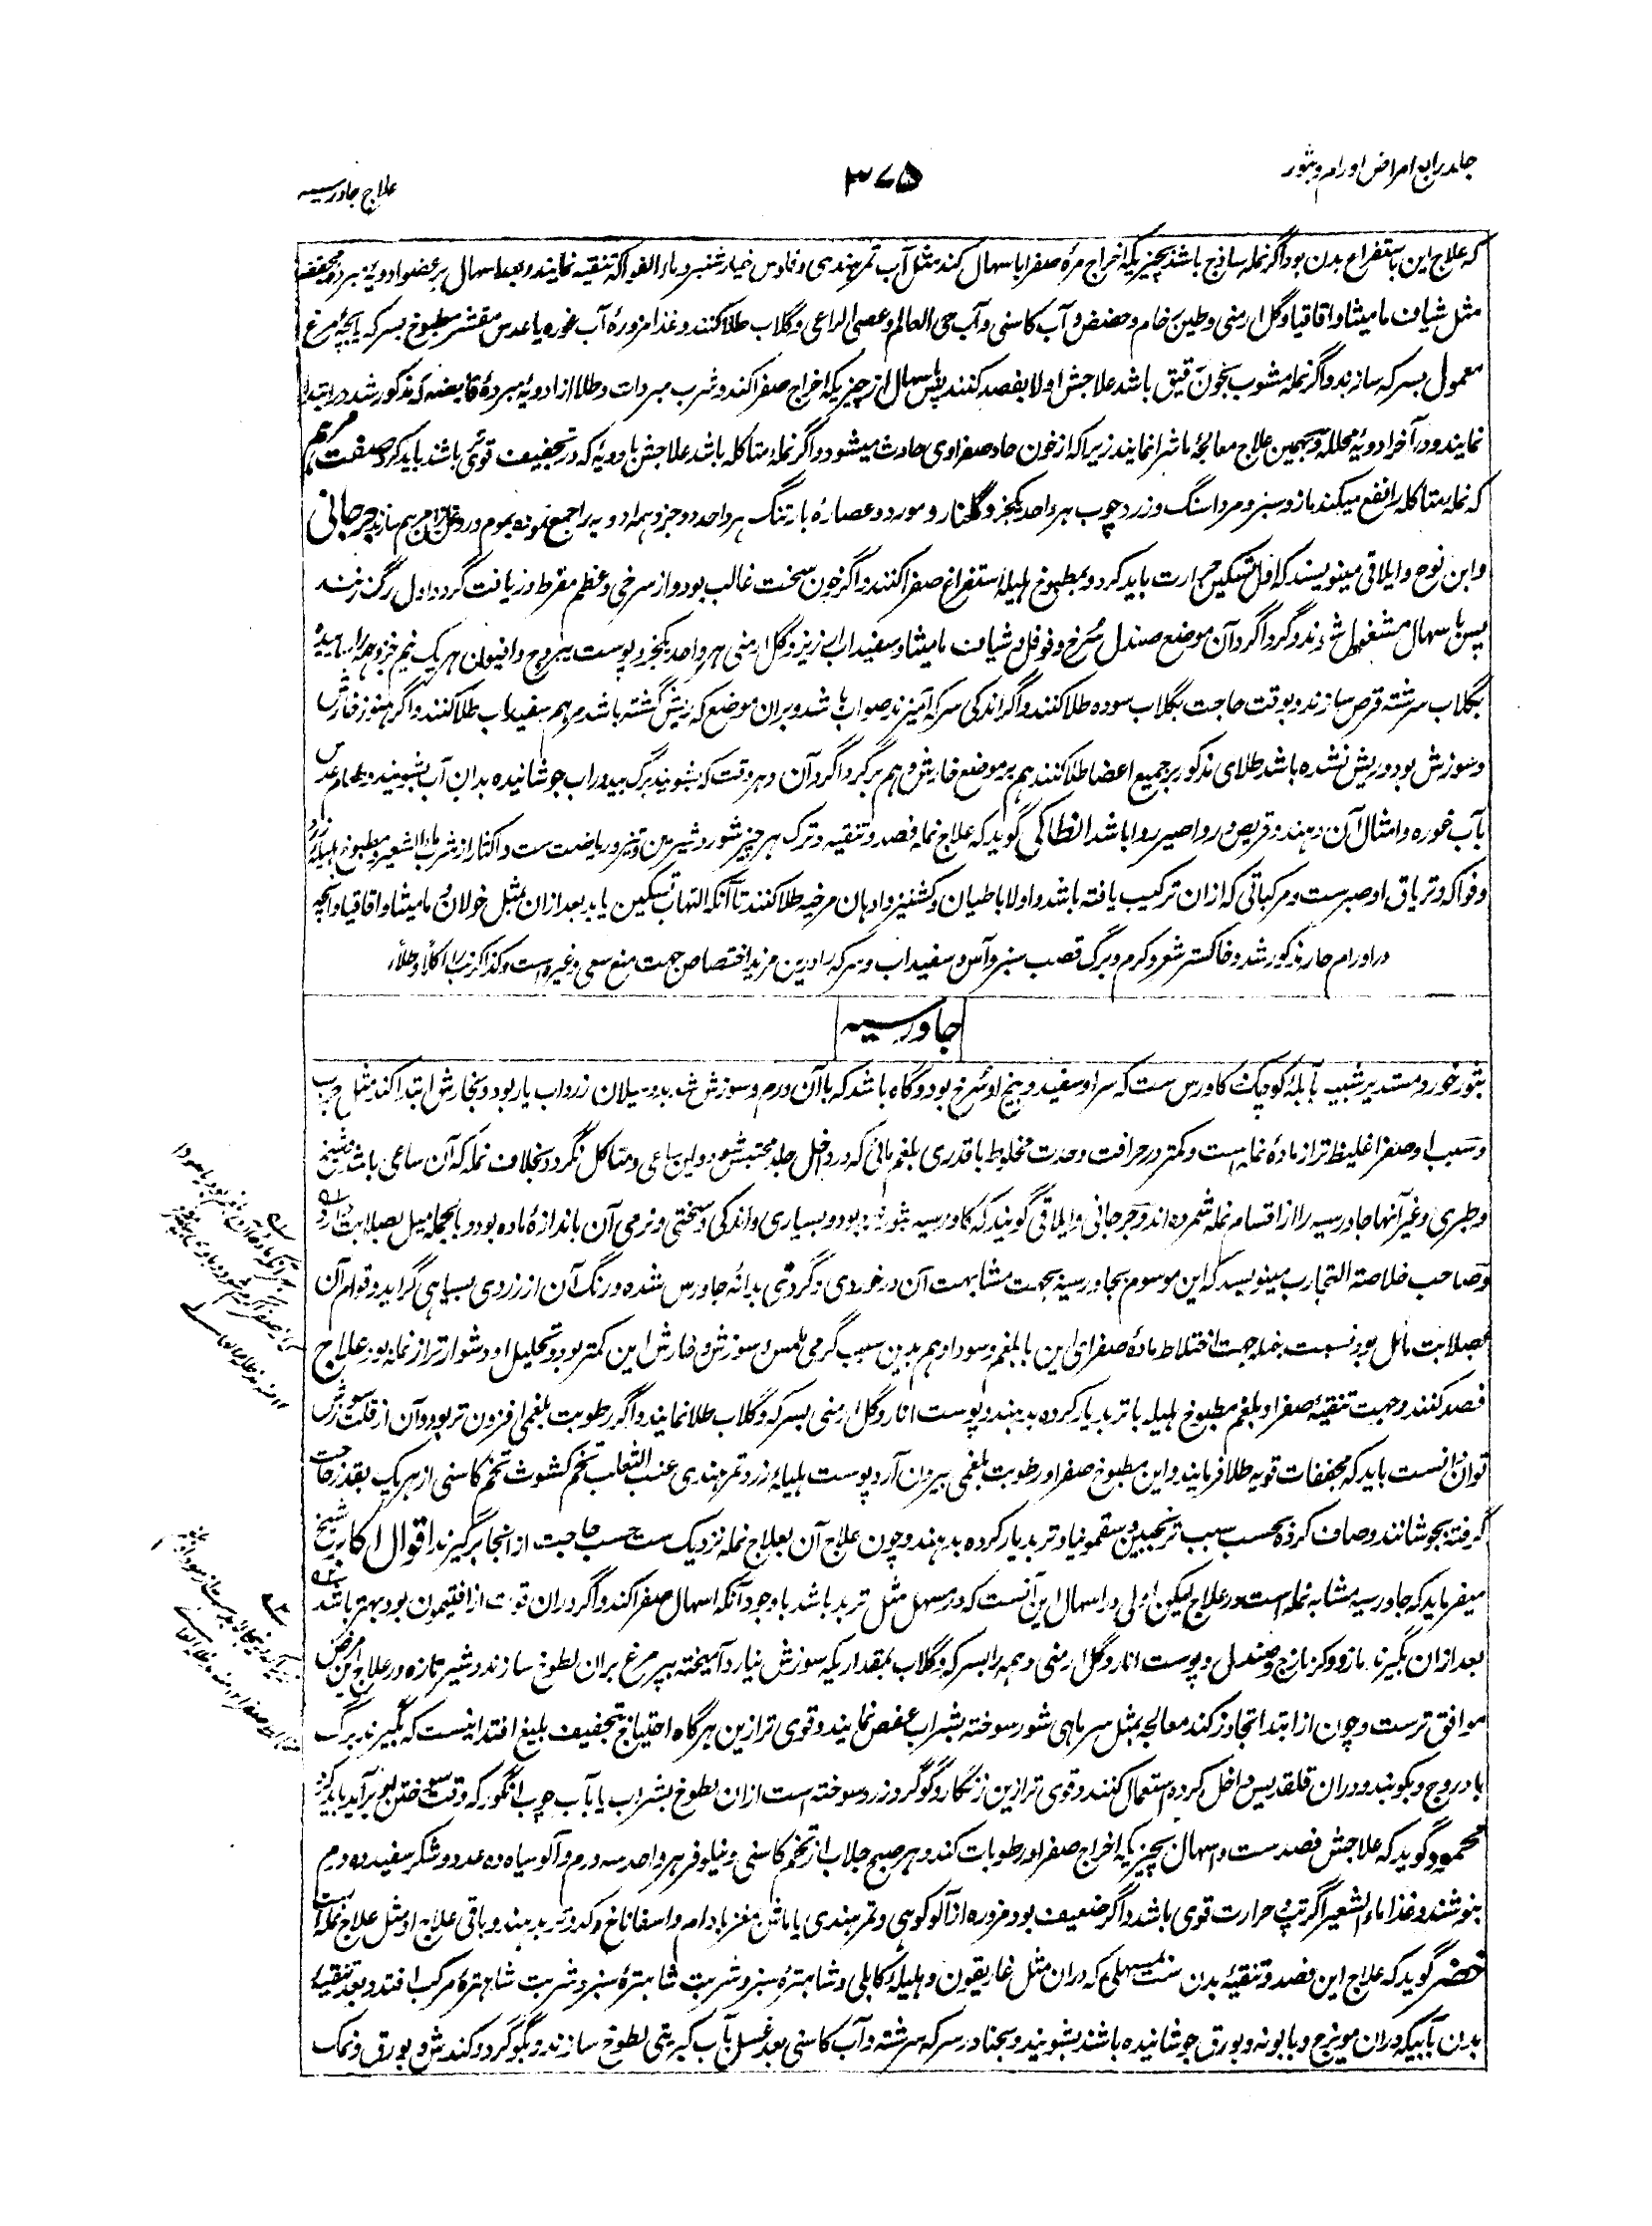 جلد رابع امراض اورام و بثور
۳۷۵
علاج جاورسیه
که علاج این باستفراغ بدن بود اگر نمله ساذج باشد بچیزیکه اخراج مرهٔ صفرا باسهال کند مثل آب تمر هندی و فلوس خیار شنبر و ماء الفواکه تنقیه نمایند و بعد اسهال بر عضو ادویهٔ مبرده مجففه
مثل شیاف مامیثا و اقاقیا و گل ارمنی و طین خام و حضض و آب کاسنی و آب حی العالم و عصی الراعی و گلاب طلا کنند و غذا مزورهٔ آب غوره یا عدس مقشر مطبوخ بسرکه یا بچهٔ مرغ
معمول بسرکه سازند و اگر نمله مشوب بخون رقیق باشد علاجش اولا بفصد کنند پس باسهال از چیزیکه اخراج صفرا کند و شرب مبردات و طلا از ادویهٔ مبردهٔ قابضه که مذکور شد در ابتدا
نمایند و در آخر ادویهٔ محلله و بهمین علاج معالجهٔ ماشرا نمایند زیرا که از خون حاد صفراوی حادث میشود و اگر نمله متاکله باشد علاجش بادویهٔ که در تجفیف قوی باشد باید کرد صفت مرهم
که نمله متاکله را نفع میکند مازو سبز و مرداسنگ و زردچوب هر واحد یکجزو گلنار و مورد و عصارهٔ بارتنگ هر واحد دو جزو همه ادویه را جمع نموده بموم و روغن گل مرهم سازند جرجانی
و ابن نوح و ایلاقی مینویسند که اول تسکین حرارت باید کرد و بمطبوخ هلیله استفراغ صفرا کنند و اگر خون سخت غالب بود و از سرخی و عظم مفرط دریافت گردد اول رگ زنند
پس باسهال مشغول شوند و گرداگرد آن موضع صندل سرخ و فوفل و شیاف مامیثا و سفیداب ارزیز و گل ارمنی هر واحد یکجزو پوست یبروج و افیون هر یک نیم جزو همه را سائیده
بگلاب سرشته قرص سازند و بوقت حاجت بگلاب سوده طلا کنند و اگر اندکی سرکه آمیزند صواب باشد و بران موضع که ریش گشته باشد مرهم سفیداب طلا کنند و اگر هنوز خارش
و سوزش بود و ریش نشده باشد طلای مذکور بر جمیع اعضا طلا کنند هم بر موضع خارش و هم بر گرداگرد آن و هر وقت که بشویند برگ بید در آب جوشانیده بدان آب بشویند و طعام عدس
بآب غوره و امثال آن دهند و قریص و رواصیر روا باشد انطاکی گوید که علاج نمله فصد و تنقیه و ترک هر چیز شور و شیرین و تیز و ریاضت ست و اکثار از شرب ماء الشعیر و مطبوخ هلیله زرد
و فواکه و تریاق او صبر ست و مرکباتی که ازان ترکیب یافته باشد و اولا باطیان و کشنیز و ادهان مرخیه طلا کنند تا آنکه التهاب تسکین یابد بعد ازان بمثل خولان و مامیثا و اقاقیا و آنچه
در اورام حار مذکور شد و خاکستر شعر و کرم و برگ قصب سبز و آس و سفیداب و سرکه را درین مزید اختصاص جهت منع سعی و غیره است و کذا کزبره اکلا و طلاءً
جاورسیه
بثور خورد مستدیر شبیه بآبلهٔ کوچک کاورس ست که سر او سفید و بیخ او سرخ بود و گاه باشد که باآن ورم و سوزش شدید و سیلان زرداب یار بود و بخارش ابتدا کند مثل جرب
و سبب او صفرا غلیظ تر از مادهٔ نمله است و کمتر در حرافت و حدت مخلوط باقدری بلغم مائی که در داخل جلد محتبس شود و این ساعی و متاکل نگردد بخلاف نمله که آن ساعی باشد شیخ
و طبری و غیر آنها جاورسیه را از اقسام نمله شمرده اند و جرجانی و ایلاقی گویند که کاورسیه بثور بود و بسیاری و اندکی و سختی و نرمی آن باندازهٔ ماده بود و بالجمله میل بصلابت دارد
و صاحب خلاصة التجارب مینویسد که این موسوم بجاورسیه بجهت مشابهت آن در خوردی و گردی بدانهٔ جاورس شده و رنگ آن از زردی بسیاهی گراید و قوام آن
بصلابت مائل بود نسبت بنمله جهت اختلاط مادهٔ صفرای این با بلغم و سودا و هم بدین سبب گرمی ملمس و سوزش و خارش این کمتر بود و تحلیل او دشوارتر از نمله بود علاج
فصد کنند و جهت تنقیهٔ صفرا و بلغم مطبوخ هلیله باتربد یار کرده بدهند و پوست انار و گل ارمنی بسرکه و گلاب طلا نمایند و اگر رطوبت بلغمی افزون تر بود و آن از قلت سوزش
توان دانست باید که مجففات قویه طلا فرمایند و این مطبوخ صفرا و رطوبت بلغمی بیرون آرد پوست هلیلهٔ زرد تمر هندی عنب الثعلب تخم کشوث تخم کاسنی از هر یک بقدر حاجت
گرفته بجوشانند و صاف کرده بحسب سبب ترنجبین و سقمونیا و تربد یار کرده بدهند و چون علاج آن بعلاج نمله نزدیک ست حسب حاجت از انجا برگیرند اقوال اکابر شیخ
میفرماید که جاورسیه مشابه نمله است در علاج لیکن اولی در اسهال این آنست که در مسهل مثل تربد باشد باوجود آنکه اسهال صفرا کند و اگر دران قوت از افتیمون بود بهتر باشد
بعد ازان بگیرند مازو و کزمازج و صندل و پوست انار و گل ارمنی و همه را بسرکه و گلاب بمقداریکه سوزش نیارد آمیخته بپر مرغ بران لطوخ سازند و شیر تازه در علاج این مرض
موافق ترست و چون از ابتدا تجاوز کند معالجه بمثل سر ماهی شور سوخته بشراب عفص نمایند و قوی ترازین هرگاه احتیاج بتجفیف بلیغ افتد اینست که بگیرند برگ
بادروج و بکوبند و دران قلقدیس داخل کرده استعمال کنند و قوی ترازین زنگار و گوگرد زرد سوخته است ازان لطوخ بشراب یا بآب چوب انگور که وقت سوختن برآید باید کرد
محمود گوید که علاجش فصدست و اسهال بچیزیکه اخراج صفرا و رطوبات کند و هر صبح جلاب از تخم کاسنی و نیلوفر هر واحد سه درم و آلو سیاه ده عدد و شکر سفید ده درم
بنوشند و غذا ماء الشعیر اگر تپ و حرارت قوی باشد و اگر ضعیف بود مزوره از آلو کوهی و تمر هندی یا ماش و مغز بادام و اسفاناخ و کدو تر بدهند و باقی علاج او مثل علاج نمله است
خضر گوید که علاج این فصد و تنقیهٔ بدن ست بمسهلی که دران مثل غاریقون و هلیلهٔ کابلی و شاهترهٔ سبز و شربت شاهترهٔ مرکب افتد و بعد تنقیهٔ
بدن بآبیکه دران مویزج و بابونه و بورق جوشانیده باشند بشویند و بحنا در سرکه سرشته و آب کاسنی بعد غسل بآب کبریتی لطوخ سازند و بگوگرد و کندش و بورق و نمک